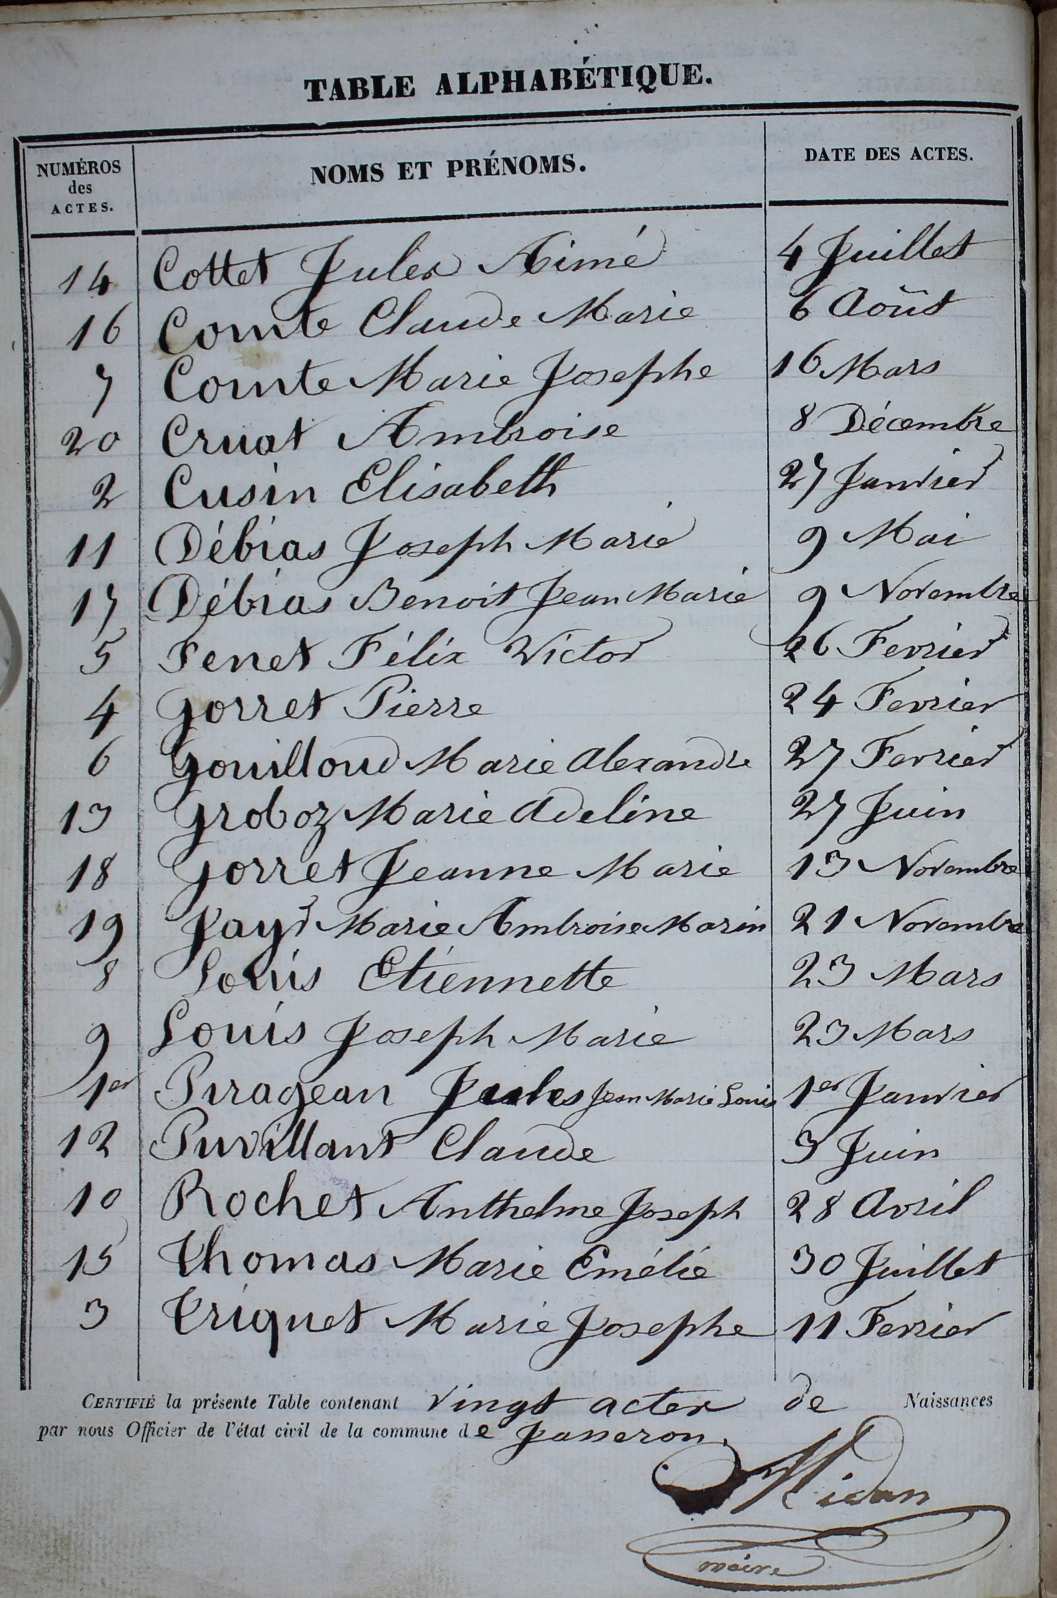 TABLE ALPHABÉTIQUE.
NUMÉROS des ACTES. NOMS ET PRÉNOMS. DATE DES ACTES.
14 Cottet Jules Aimé 4 Juillet
16 Comte Claude Marie 6 Août
7 Comte Marie Josephe 16 Mars
20 Cruat Ambroise 8 Décembre
2 Cusin Elisabeth 27 Janvier
11 Débias Joseph Marie 9 Mai
17 Débias Benoit Jean Marie 9 Novembre
5 Fenet Félix Victor 26 Fevrier
4 Gorret Pierre 24 Fevrier
6 Gouilloud Marie Alexandre 27 Fevrier
13 Groboz Marie Adeline 27 Juin
18 Gorret Jeanne Marie 13 Novembre
19 Jayr Marie Ambroise Marin 21 Novembre
8 Louis Etiennette 23 Mars
9 Louis Joseph Marie 23 Mars
1er Piragean Jules Jean Marie Louis 1er Janvier
12 Puvillant Claude 3 Juin
10 Rochet Anthelme Joseph 28 Avril
15 Thomas Marie Emélie 30 Juillet
3 Triquet Marie Josephe 11 Fevrier
CERTIFIÉ la présente Table contenant vingt actes de Naissances
par nous Officier de l'état civil de la commune de Jasseron.
Midan
maire